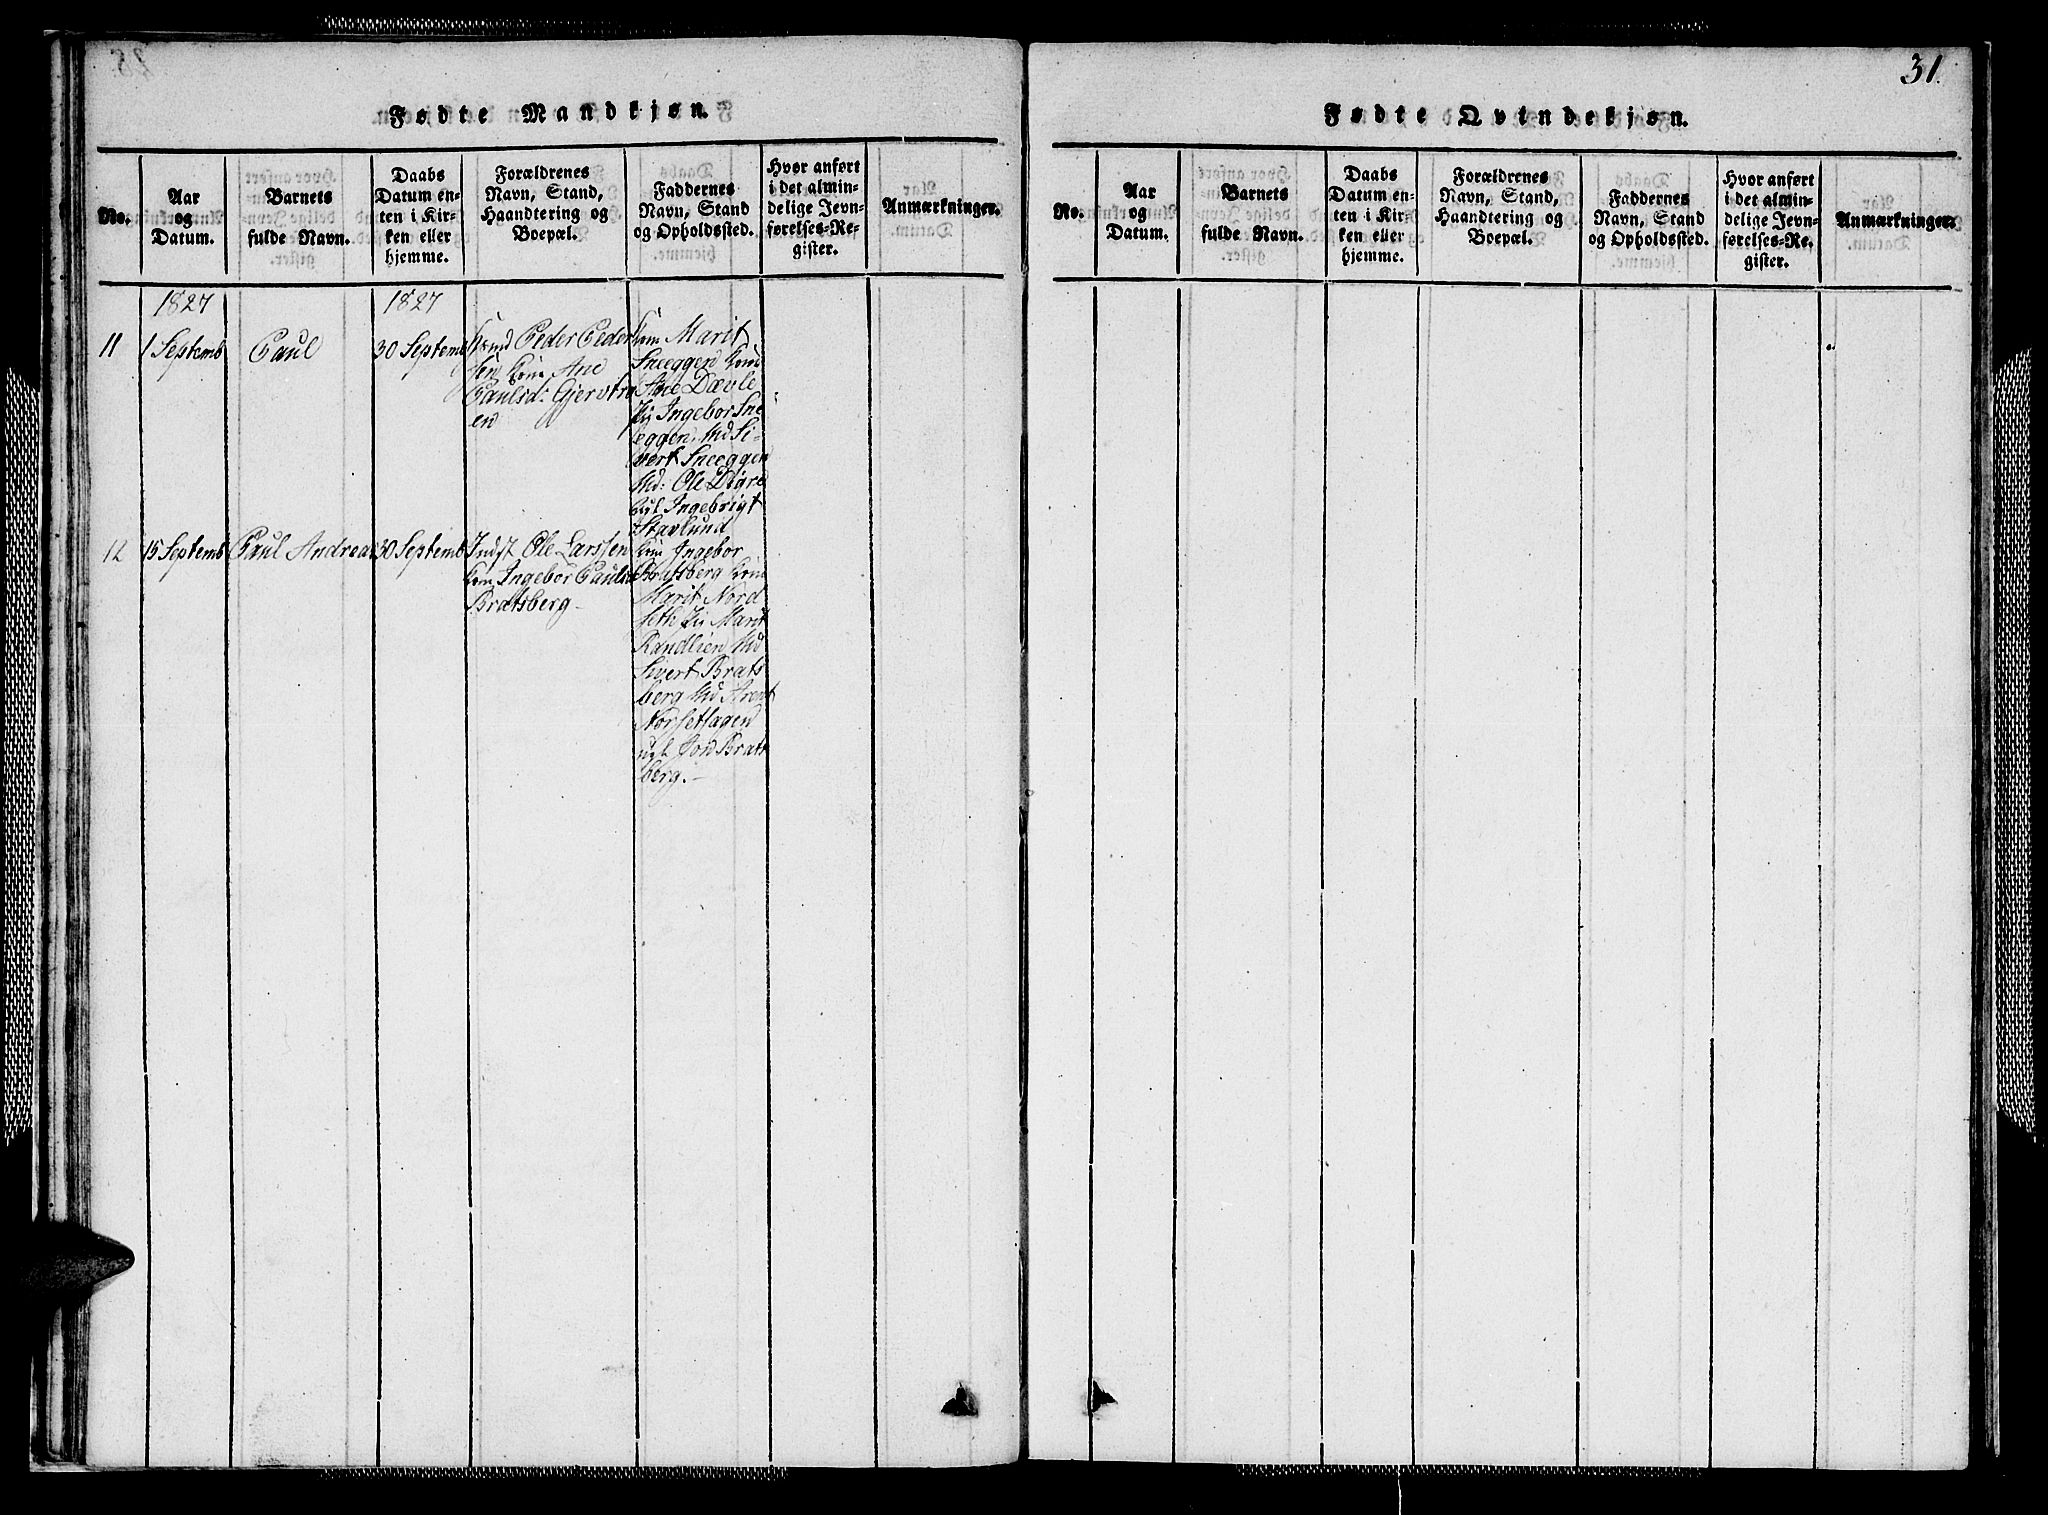 31.
Fødte Mandkjøn.
No.
Aar
og
Datum.
Barnets
fulde Navn.
Daabs
Datum en-
ten i Kir-
ken eller
hjemme.
Forældrenes
Navn, Stand,
Haandtering og
Boepæl.
Faddernes
Navn, Stand
og Opholdssted.
Hvor anført
i det almin-
delige Jevn-
førelses-Re-
gister.
Anmærkninger.
1827
1827
11
1 Septemb
Paul
30 Septemb
Peder Peder
sen Kone Ane
Paulsd: Gjervtro
en
Kone Marit
Sneeggen Kone
Ane Dævle
Pii Ingebor Sne
eggen, Md Si-
vert Sneeggen
Md: Ole Digre
Ingebrigt
Stavlund
12
15 Septemb
Paul Andreas
30 Septemb
Indst Ole Larssen
Kone Ingebor Paulsd
Bratsberg -
Kone Ingebor
Bratsberg Kone
Marit Nord
seth Pii Marit
Randlien Md
Sivert Brats
berg Md Arent
Norsethagen
ugk Jon Brats
berg. -
Fødte Qvindekjøn.
No.
Aar
og
Datum.
Barnets
fulde Navn.
Daabs
Datum en-
ten i Kir-
ken eller
hjemme.
Forældrenes
Navn, Stand,
Haandtering og
Boepæl.
Faddernes
Navn, Stand
og Opholdssted.
Hvor anført
i det almin-
delige Jevn-
førelses-Re-
gister.
Anmærkninger.